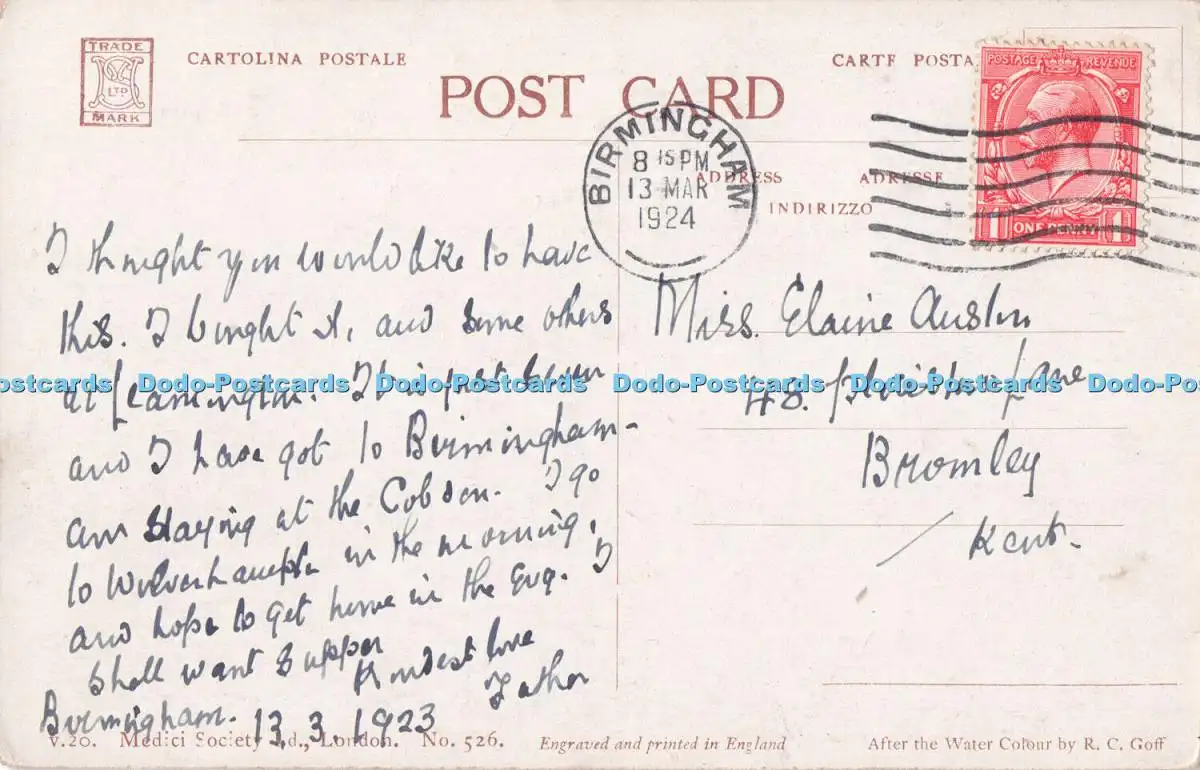 TRADE
S LTD
MARK
CARTOLINA POSTALE
CARTE POSTA
POST CARD
POSTAGE REVENUE
1 ONE PENNY 1
BIRMINGHAM
8 15 PM
13 MAR
1924
ADDRESS ADRESSE
INDIRIZZO
I thought you would like to have
this. I bought it, and some others
at Leamington. It is just seven
and I have got to Birmingham -
am staying at the Cobden. I go
to Wolverhampton in the morning,
and hope to get home in the Evg. I
shall want supper
Kindest love
Father
Birmingham. 13.3.1923
Miss. Elaine Austin
48. Lane
Bromley
Kent.
Dodo-Postcards Dodo-Postcards Dodo-Postcards Dodo-Postcards Dodo-Postcards Dodo-Post
V.20. Medici Society Ltd., London. No. 526.
Engraved and printed in England
After the Water Colour by R. C. Goff